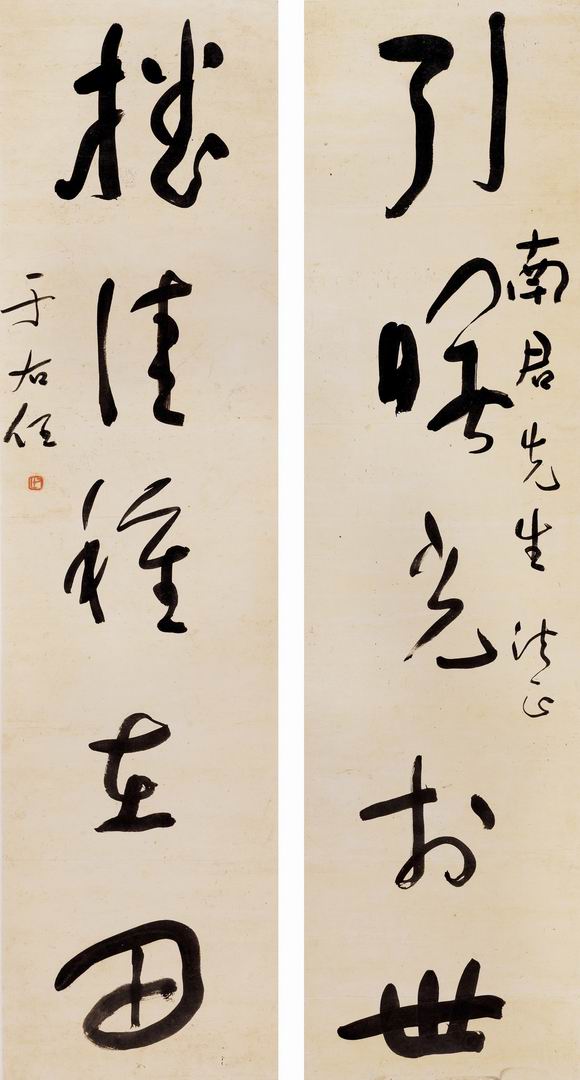 南君先生 法正
引曙光於世
播佳種在田
于右任